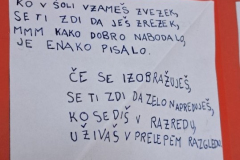 KO V ŠOLI VZAMEŠ ZVEZEK,
SE TI ZDI DA JEŠ ZREZEK,
MMM KAKO DOBRO NABODALO,
JE ENAKO PISALO.
ČE SE IZOBRAŽUJEŠ,
SE TI ZDI DA ZELO NAPREDUJEŠ,
KO SEDIŠ V RAZREDU,
UŽIVAŠ V PRELEPEM RAZGLEDU